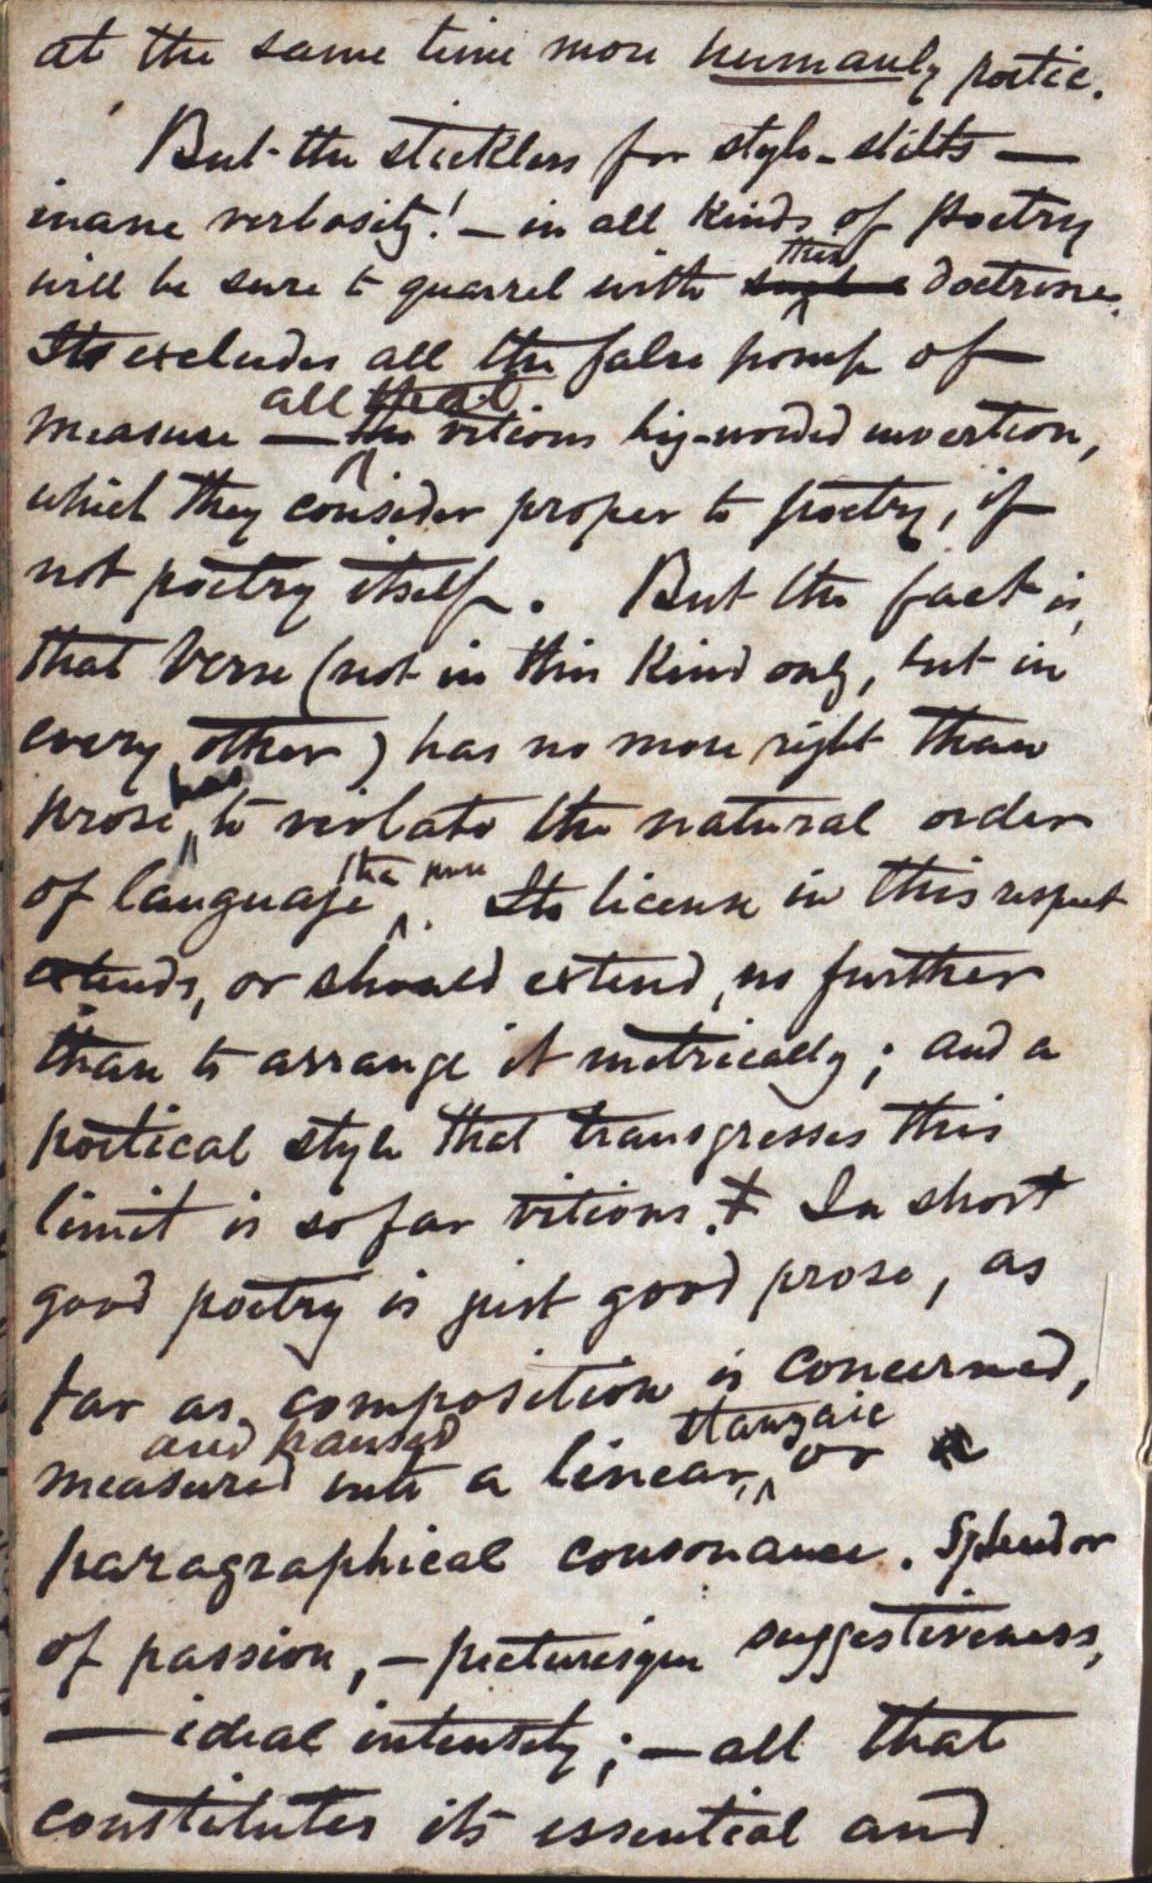 at the same time more humanly poetic.
But the sticklers for style-stilts —
inane verbosity! — in all kinds of poetry
this
will be sure to quarrel with such a doctrine.
It excludes all the false pomp of
all that
measure — the vitious big-worded invertion,
which they consider proper to poetry, if
not poetry itself. But the fact is,
that Verse (not in this kind only, but in
every other) has no more right than
has
prose to violate the natural order
of language. Its license in this respect
extends, or should extend, no further
than to arrange it metrically; and a
poetical style that transgresses this
limit is so far vitious. ‡ In short
good poetry is just good prose, as
far as composition is concerned,
and paused stanzaic
measured into a linear, or a
paragraphical consonance. Splendor
of passion, — picturesque suggestiveness,
— ideal intensity; — all that
constitutes its essential and